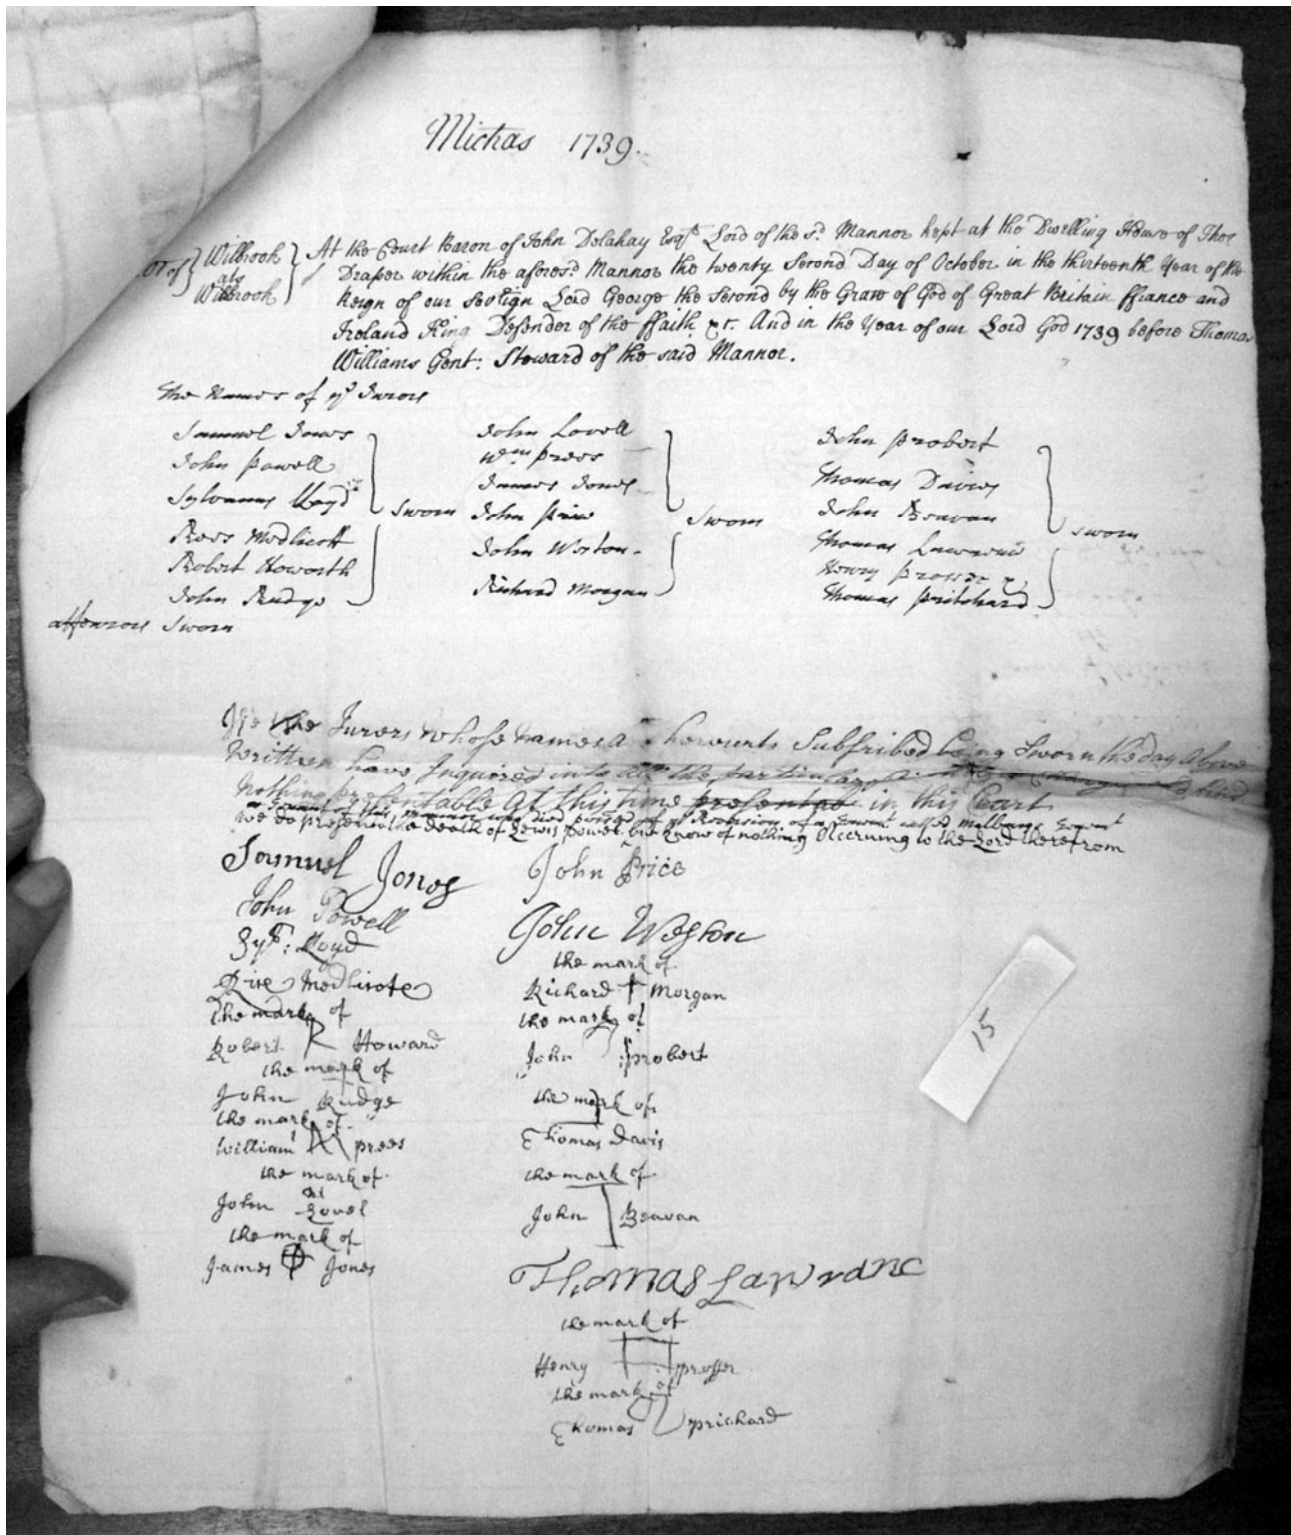 Michas 1739.
Wilbrook
als
Wilbrook
At the Court Baron of John Delahay Esqr. Lord of the sd. Mannor kept at the Dwelling House of Thos
Draper within the aforesd. Mannor the twenty second Day of October in the thirteenth Year of the
Reign of our Sovereign Lord George the Second by the Grace of God of Great Britain ffrance and
Ireland King Defender of the ffaith &c. And in the Year of our Lord God 1739 before Thomas
Williams Gent: Steward of the said Mannor.
The Names of ye Jurors
Samuel Jones
John Powell
Sylvanus Lloyd
Rees Medlicott
Robert Howorth
John Rudge
Sworn
John Lovell
Wm prees
James Jones
John Price
John Weston
Richard Morgan
Sworn
John Probert
Thomas Davies
John Beavan
Thomas Lawrence
Henry Prosser
Thomas Pritchard
Sworn
affearors Sworn
We the Jurors whose names are hereunto Subscribed being Sworn the day above
written have Inquired into all the particulars
Nothing presentable At this time presentable in this Court
of this mannor who died of ye Reversion of a called
we do present the death of Lewis Powel but know of nothing Accruing to the Lord therefrom
Samuel Jones
John Powell
Sy: Lloyd
Rice Medlicote
the mark of
Robert R Howard
the mark of
John Rudge
the mark of
William prees
the mark of
John Lovel
the mark of
James Jones
John Price
John Weston
the mark of
Richard Morgan
the mark of
John probert
the mark of
Thomas Davis
the mark of
John Beavan
Thomas Lawranc
the mark of
Henry prosser
the mark of
Thomas prichard
15